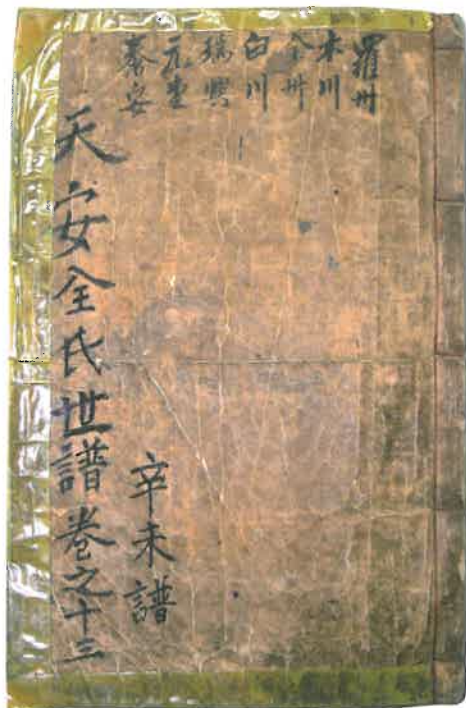 羅州
木川
全州
白川
瑞興
元堂
泰安
辛未譜
天安全氏世譜卷之十三